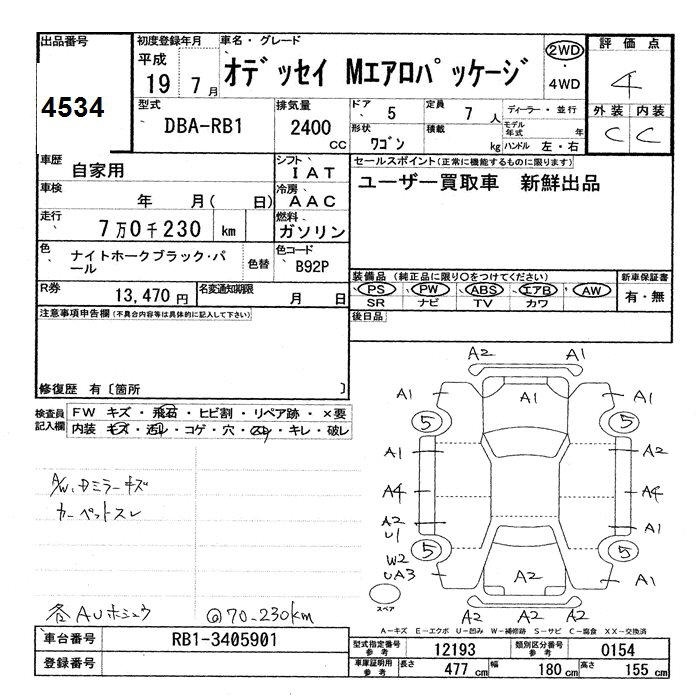 出品番号
4534
初度登録年月
平成
19 7月
車名・グレード
オデッセイ Mエアロパッケージ
2WD
・
4WD
評価点
4
外装 内装
C C
型式
DBA-RB1
排気量
2400
CC
ドア 5
定員 7人
ディーラー・並行
形状 ワゴン
積載 kg
モデル年式 年
ハンドル 左・右
車歴
自家用
シフト
IAT
セールスポイント(正常に機能するものに限ります)
ユーザー買取車 新鮮出品
車検
年 月( 日)
冷房
AAC
走行
7万0千230 km
燃料
ガソリン
色
ナイトホークブラック・パール
色替
色コード
B92P
R券
13,470円
名変通知期限
月 日
装備品(純正品に限り○をつけてください)
PS PW ABS エアB AW
SR ナビ TV カワ
新車保証書
有・無
後日品
注意事項申告欄(不具合内容等は具体的に記入して下さい)
修復歴 有〔箇所 〕
検査員
記入欄
FW キズ・飛石・ヒビ割・リペア跡・×要
内装 キズ・汚レ・コゲ・穴・スレ・キレ・破レ
A/W、Dミラーキズ
カーペットスレ
各AUホシュウ
@70-230km
A2 A1
A1 A1 A1
5 5
A1 A2 A2
A4 A4
A2
U1 A1
5 5
W2
UA3 A2 A1
スペア
A2 A2 A2
A-キズ E-エクボ U-凹み W-補修跡 S-サビ C-腐食 XX-交換済
車台番号
RB1-3405901
登録番号
型式指定番号
参考
12193
類別区分番号
参考
0154
車庫証明用
参考
長さ 477cm
幅 180cm
高さ 155cm